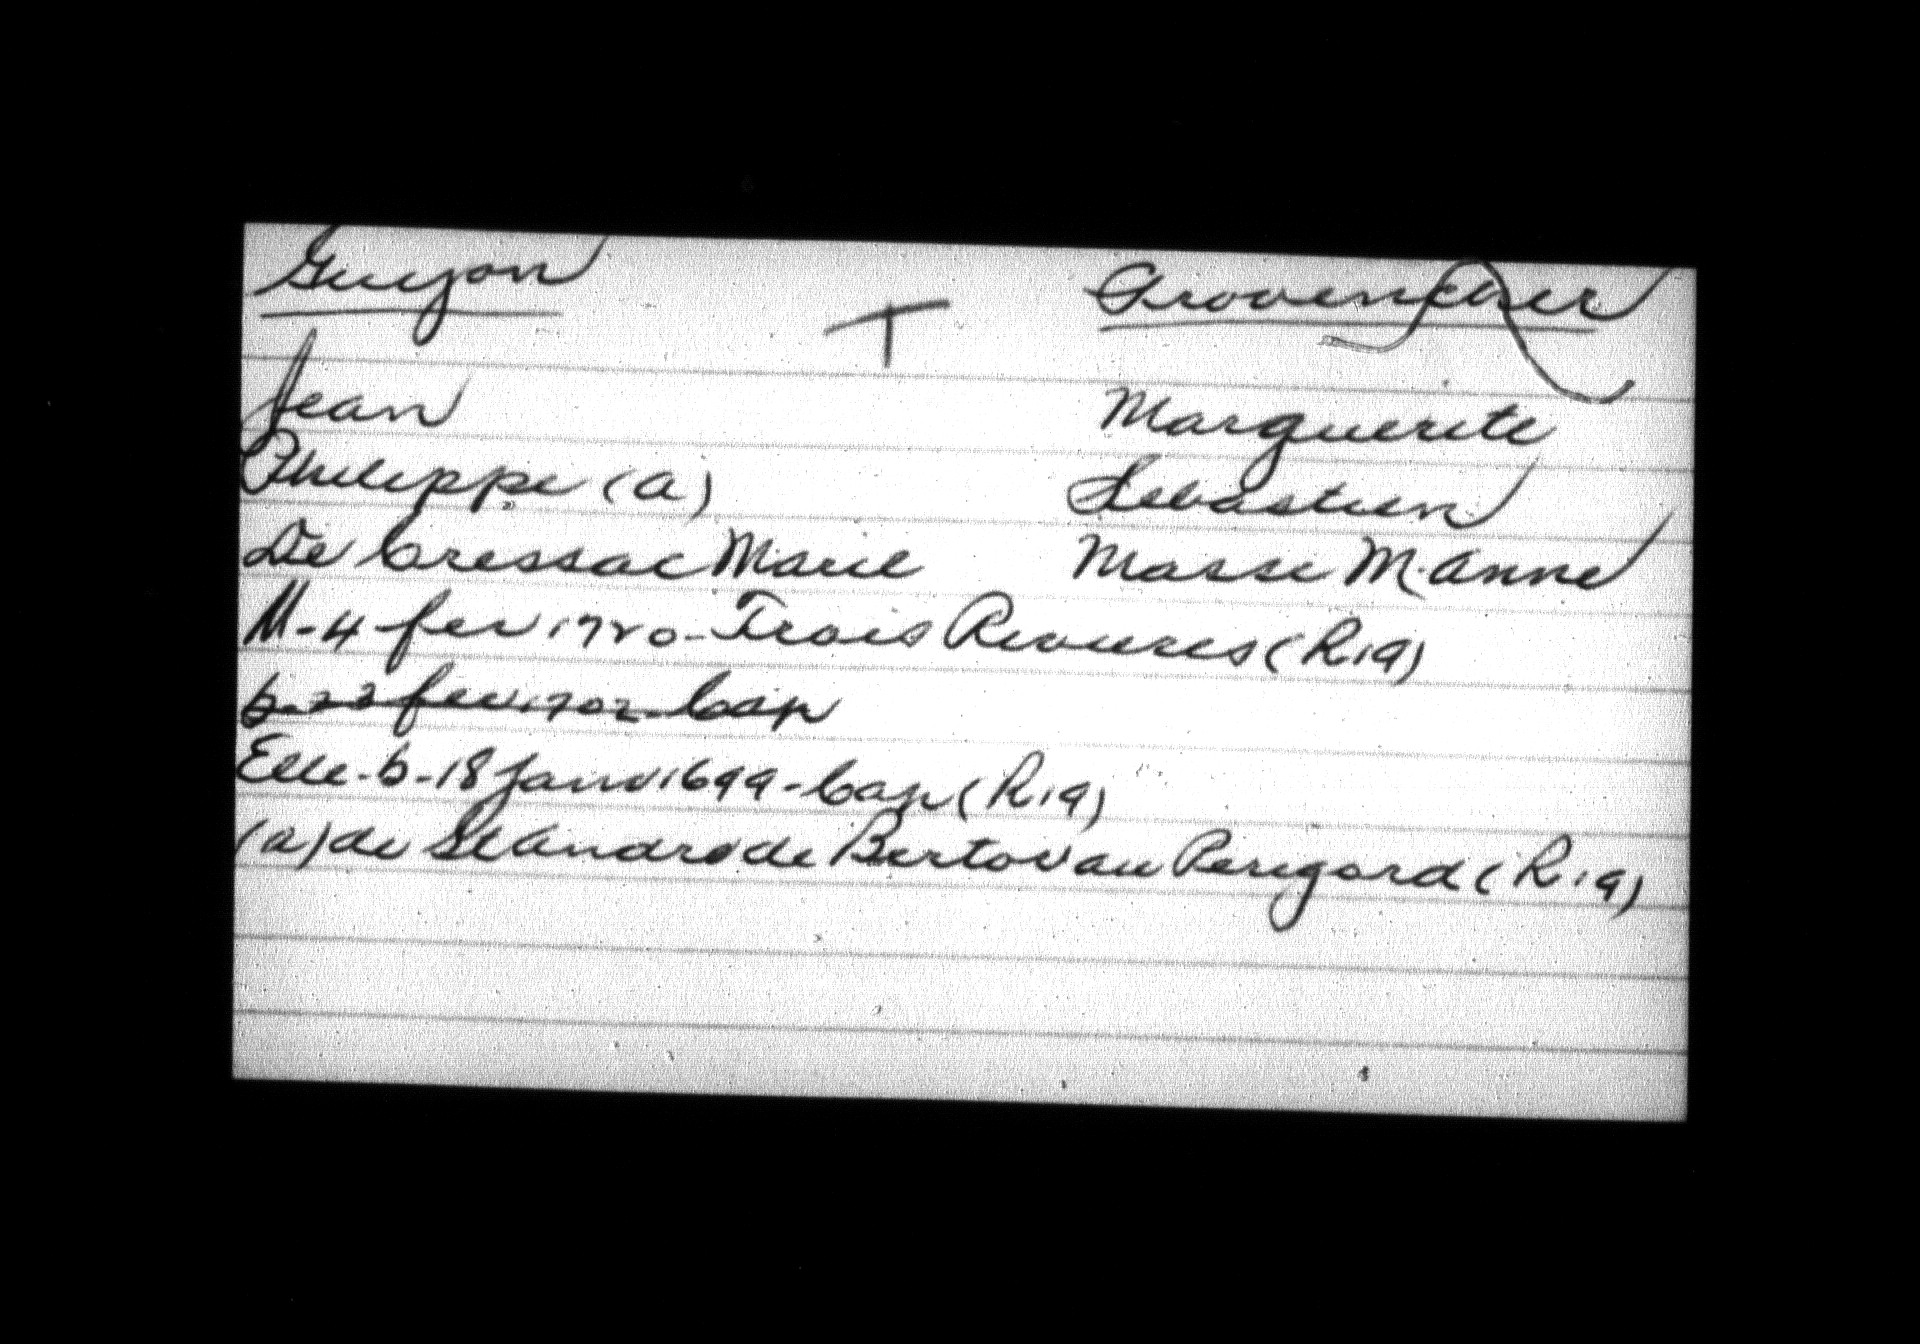 Guyon T Provencher
Jean Marguerite
Philippe (a) Sebastien
De Cressac Marie Masse M. Anne
M-4 fev 1720-Trois Rivieres (R19)
b-22 fev 1702-Cap
Elle-b-18 Janv 1699-Cap (R19)
(a) de St Andre de Bertov au Perigord (R19)